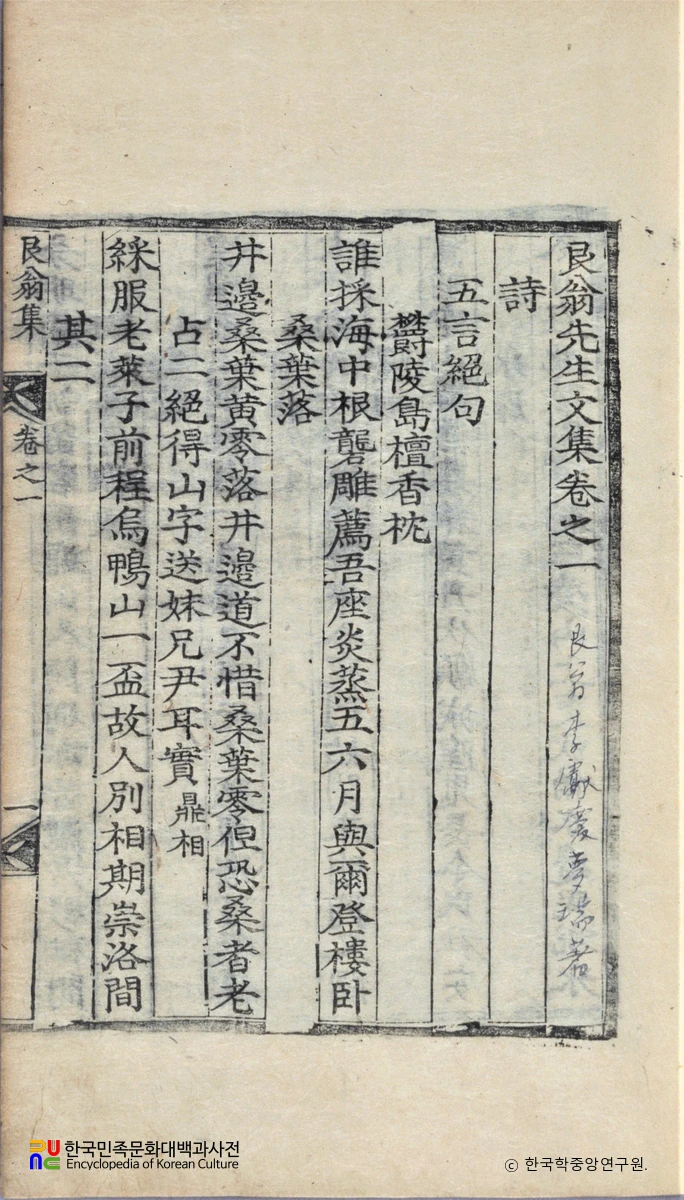 艮翁先生文集卷之一
艮翁李獻慶夢瑞著
詩
五言絕句
欝陵島檀香枕
誰採海中根礱雕薦吾座炎蒸五六月與爾登樓卧
桑葉落
井邉桑葉黄零落井邉道不惜桑葉零但恐桑者老
占二絕得山字送妹兄尹耳實鼎相
綵服老萊子前程烏鴨山一盃故人別相期崇洛間
其二
艮翁集
卷之一
一
한국민족문화대백과사전
Encyclopedia of Korean Culture
© 한국학중앙연구원.